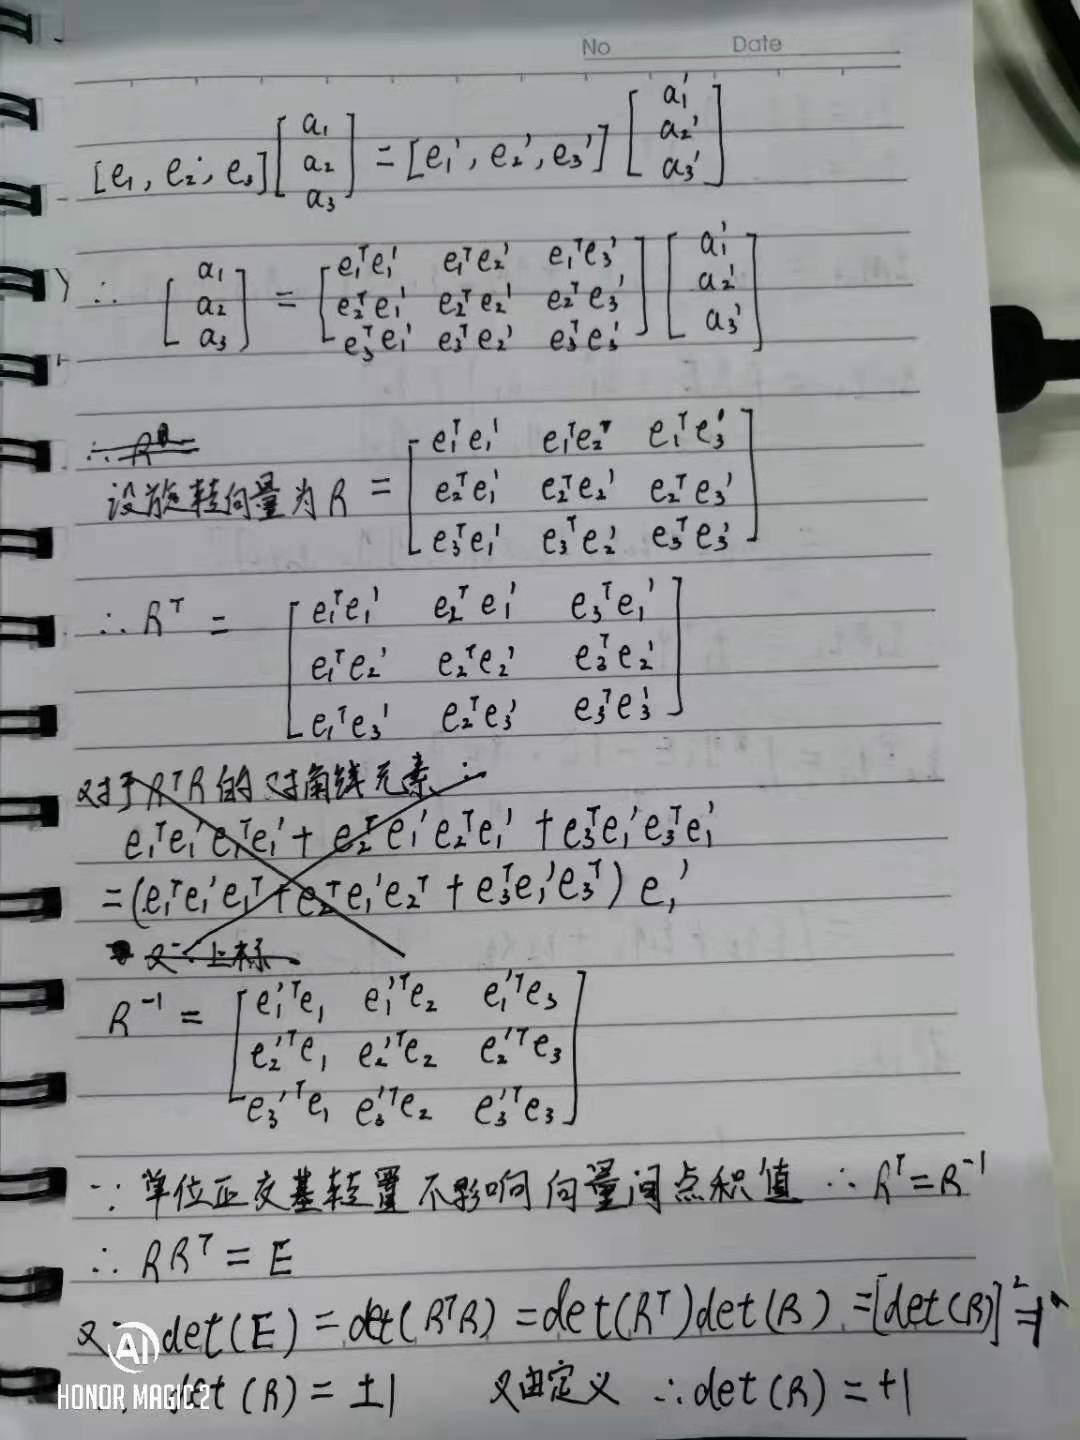 No Date
[e₁, e₂, e₃] [a₁ a₂ a₃] = [e₁', e₂', e₃'] [a₁' a₂' a₃']
∴ [a₁ a₂ a₃] = [e₁ᵀe₁' e₁ᵀe₂' e₁ᵀe₃' e₂ᵀe₁' e₂ᵀe₂' e₂ᵀe₃' e₃ᵀe₁' e₃ᵀe₂' e₃ᵀe₃'] [a₁' a₂' a₃']
∴ R
设旋转向量为R = [e₁ᵀe₁' e₁ᵀe₂ᵀ e₁ᵀe₃' e₂ᵀe₁' e₂ᵀe₂' e₂ᵀe₃' e₃ᵀe₁' e₃ᵀe₂' e₃ᵀe₃']
∴ Rᵀ = [e₁ᵀe₁' e₂ᵀe₁' e₃ᵀe₁' e₁ᵀe₂' e₂ᵀe₂' e₃ᵀe₂' e₁ᵀe₃' e₂ᵀe₃' e₃ᵀe₃']
对于RᵀR的对角线元素:
e₁ᵀe₁'e₁ᵀe₁' + e₂ᵀe₁'e₂ᵀe₁' + e₃ᵀe₁'e₃ᵀe₁'
= (e₁ᵀe₁'e₁ᵀ + e₂ᵀe₁'e₂ᵀ + e₃ᵀe₁'e₃ᵀ) e₁'
又∵上标
R⁻¹ = [e₁'ᵀe₁ e₁'ᵀe₂ e₁'ᵀe₃ e₂'ᵀe₁ e₂'ᵀe₂ e₂'ᵀe₃ e₃'ᵀe₁ e₃'ᵀe₂ e₃'ᵀe₃]
∵ 单位正交基转置不影响向量间点积值 ∴ Rᵀ=R⁻¹
∴ RRᵀ = E
又∵ det(E) = det(RᵀR) = det(Rᵀ)det(R) = [det(R)]² = 1
∴ det(R) = ±1 又由定义 ∴ det(R) = +1
AI
HONOR MAGIC 2